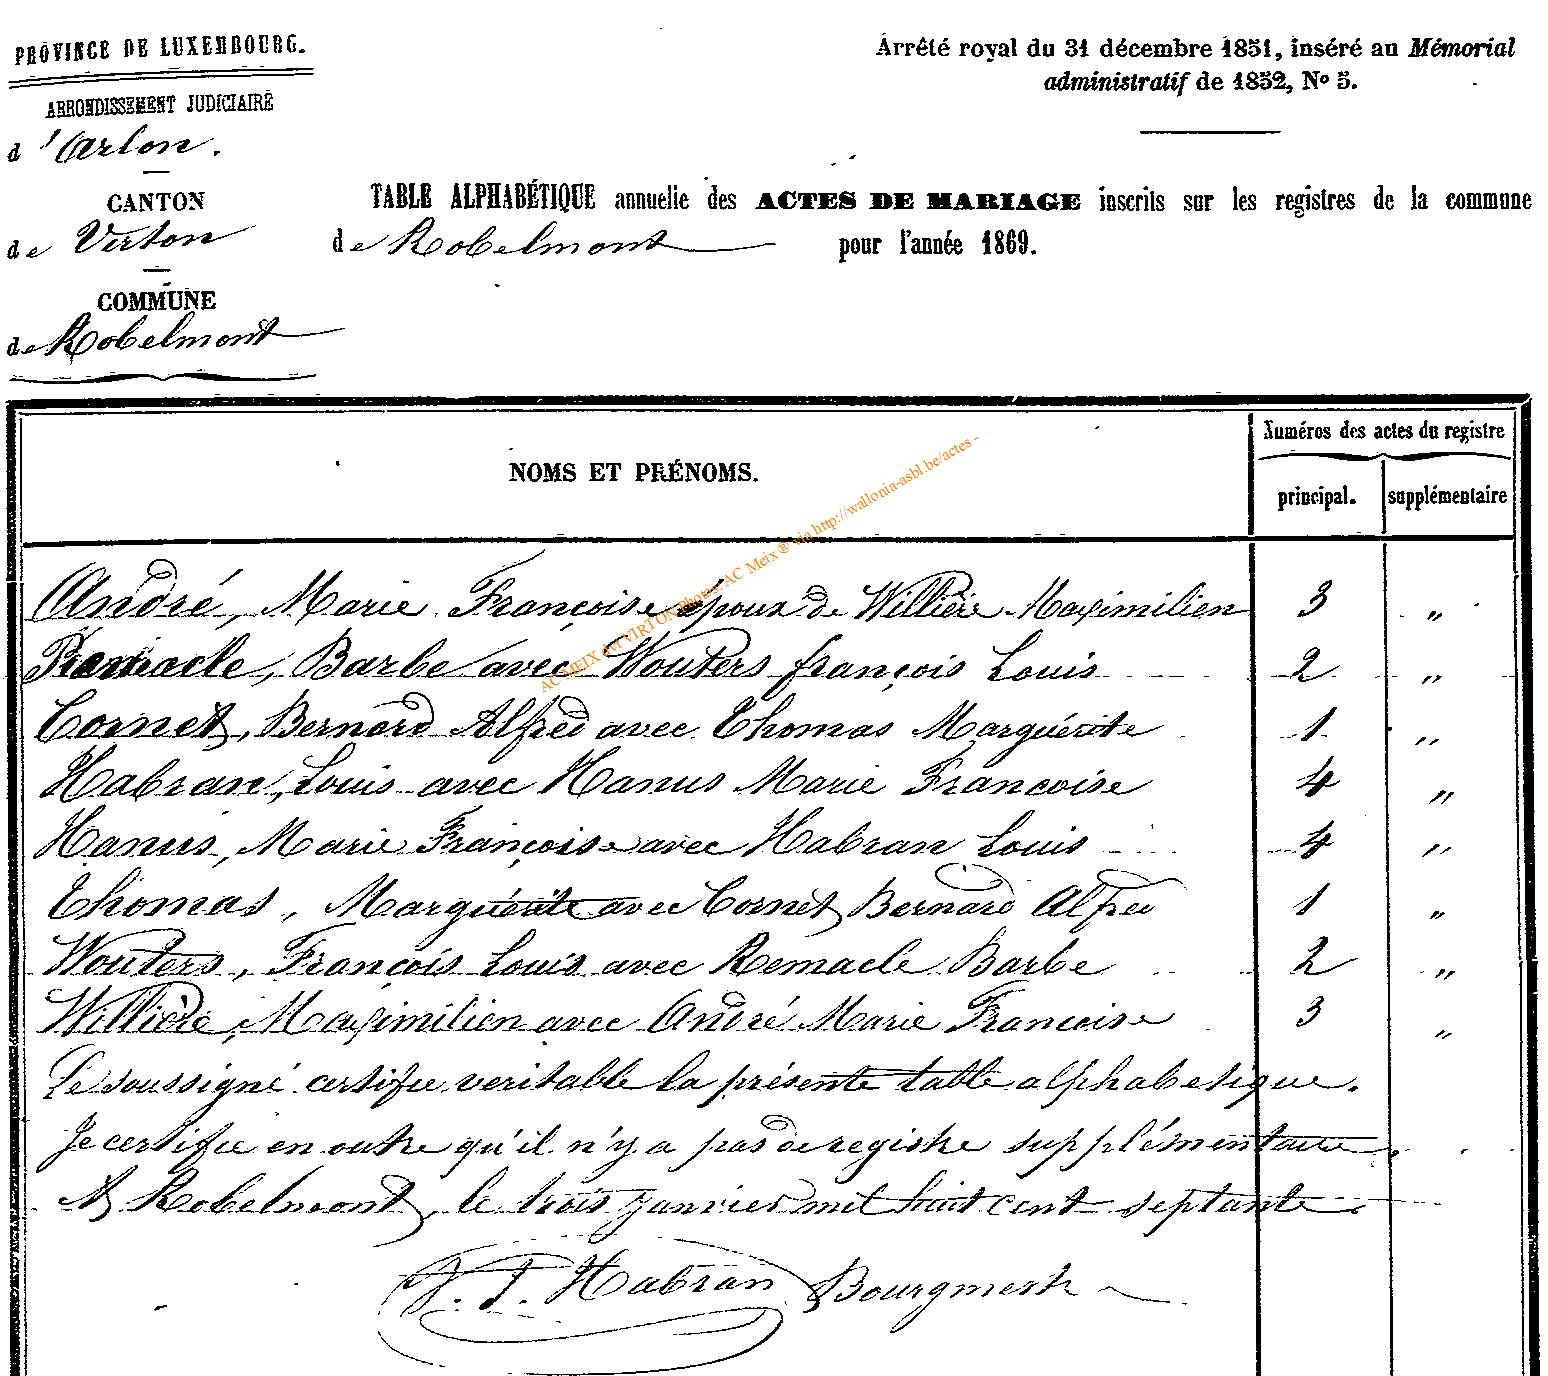 PROVINCE DE LUXEMBOURG.
ARRONDISSEMENT JUDICIAIRE
d'Arlon.
CANTON
de Virton
COMMUNE
de Robelmont
Arrêté royal du 31 décembre 1851, inséré au Mémorial
administratif de 1852, No 5.
TABLE ALPHABÉTIQUE annuelle des ACTES DE MARIAGE inscrits sur les registres de la commune
de Robelmont pour l'année 1869.
NOMS ET PRÉNOMS.
Numéros des actes du registre
principal. supplémentaire
André, Marie Françoise époux de Willière Maximilien 3 "
Remacle, Barbe avec Wouters françois Louis 2 "
Cornet, Bernard Alfred avec Thomas Marguérite 1 "
Habran, Louis avec Hanus Marie Francoise 4 "
Hanus, Marie Françoise avec Habran Louis 4 "
Thomas, Marguérite avec Cornet Bernard Alfred 1 "
Wouters, François Louis avec Remacle Barbe 2 "
Willière, Maximilien avec André Marie Francoise 3 "
Le soussigné certifie veritable la présente table alphabetique.
Je certifie en outre qu'il n'y a pas de registre supplémentaire.
A Robelmont, le trois janvier mil huit cent septante.
J. Habran Bourgmestre
AC MEIX dvt VIRTON Photos: AC Meix ® via http://wallonia-asbl.be/actes -